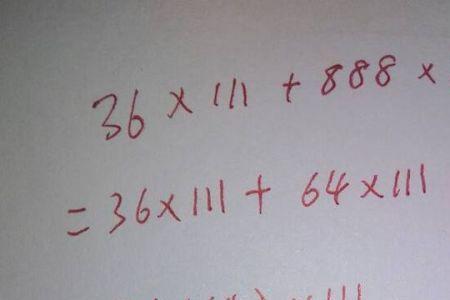 36 × 111 + 888 ×
= 36 × 111 + 64 × 111